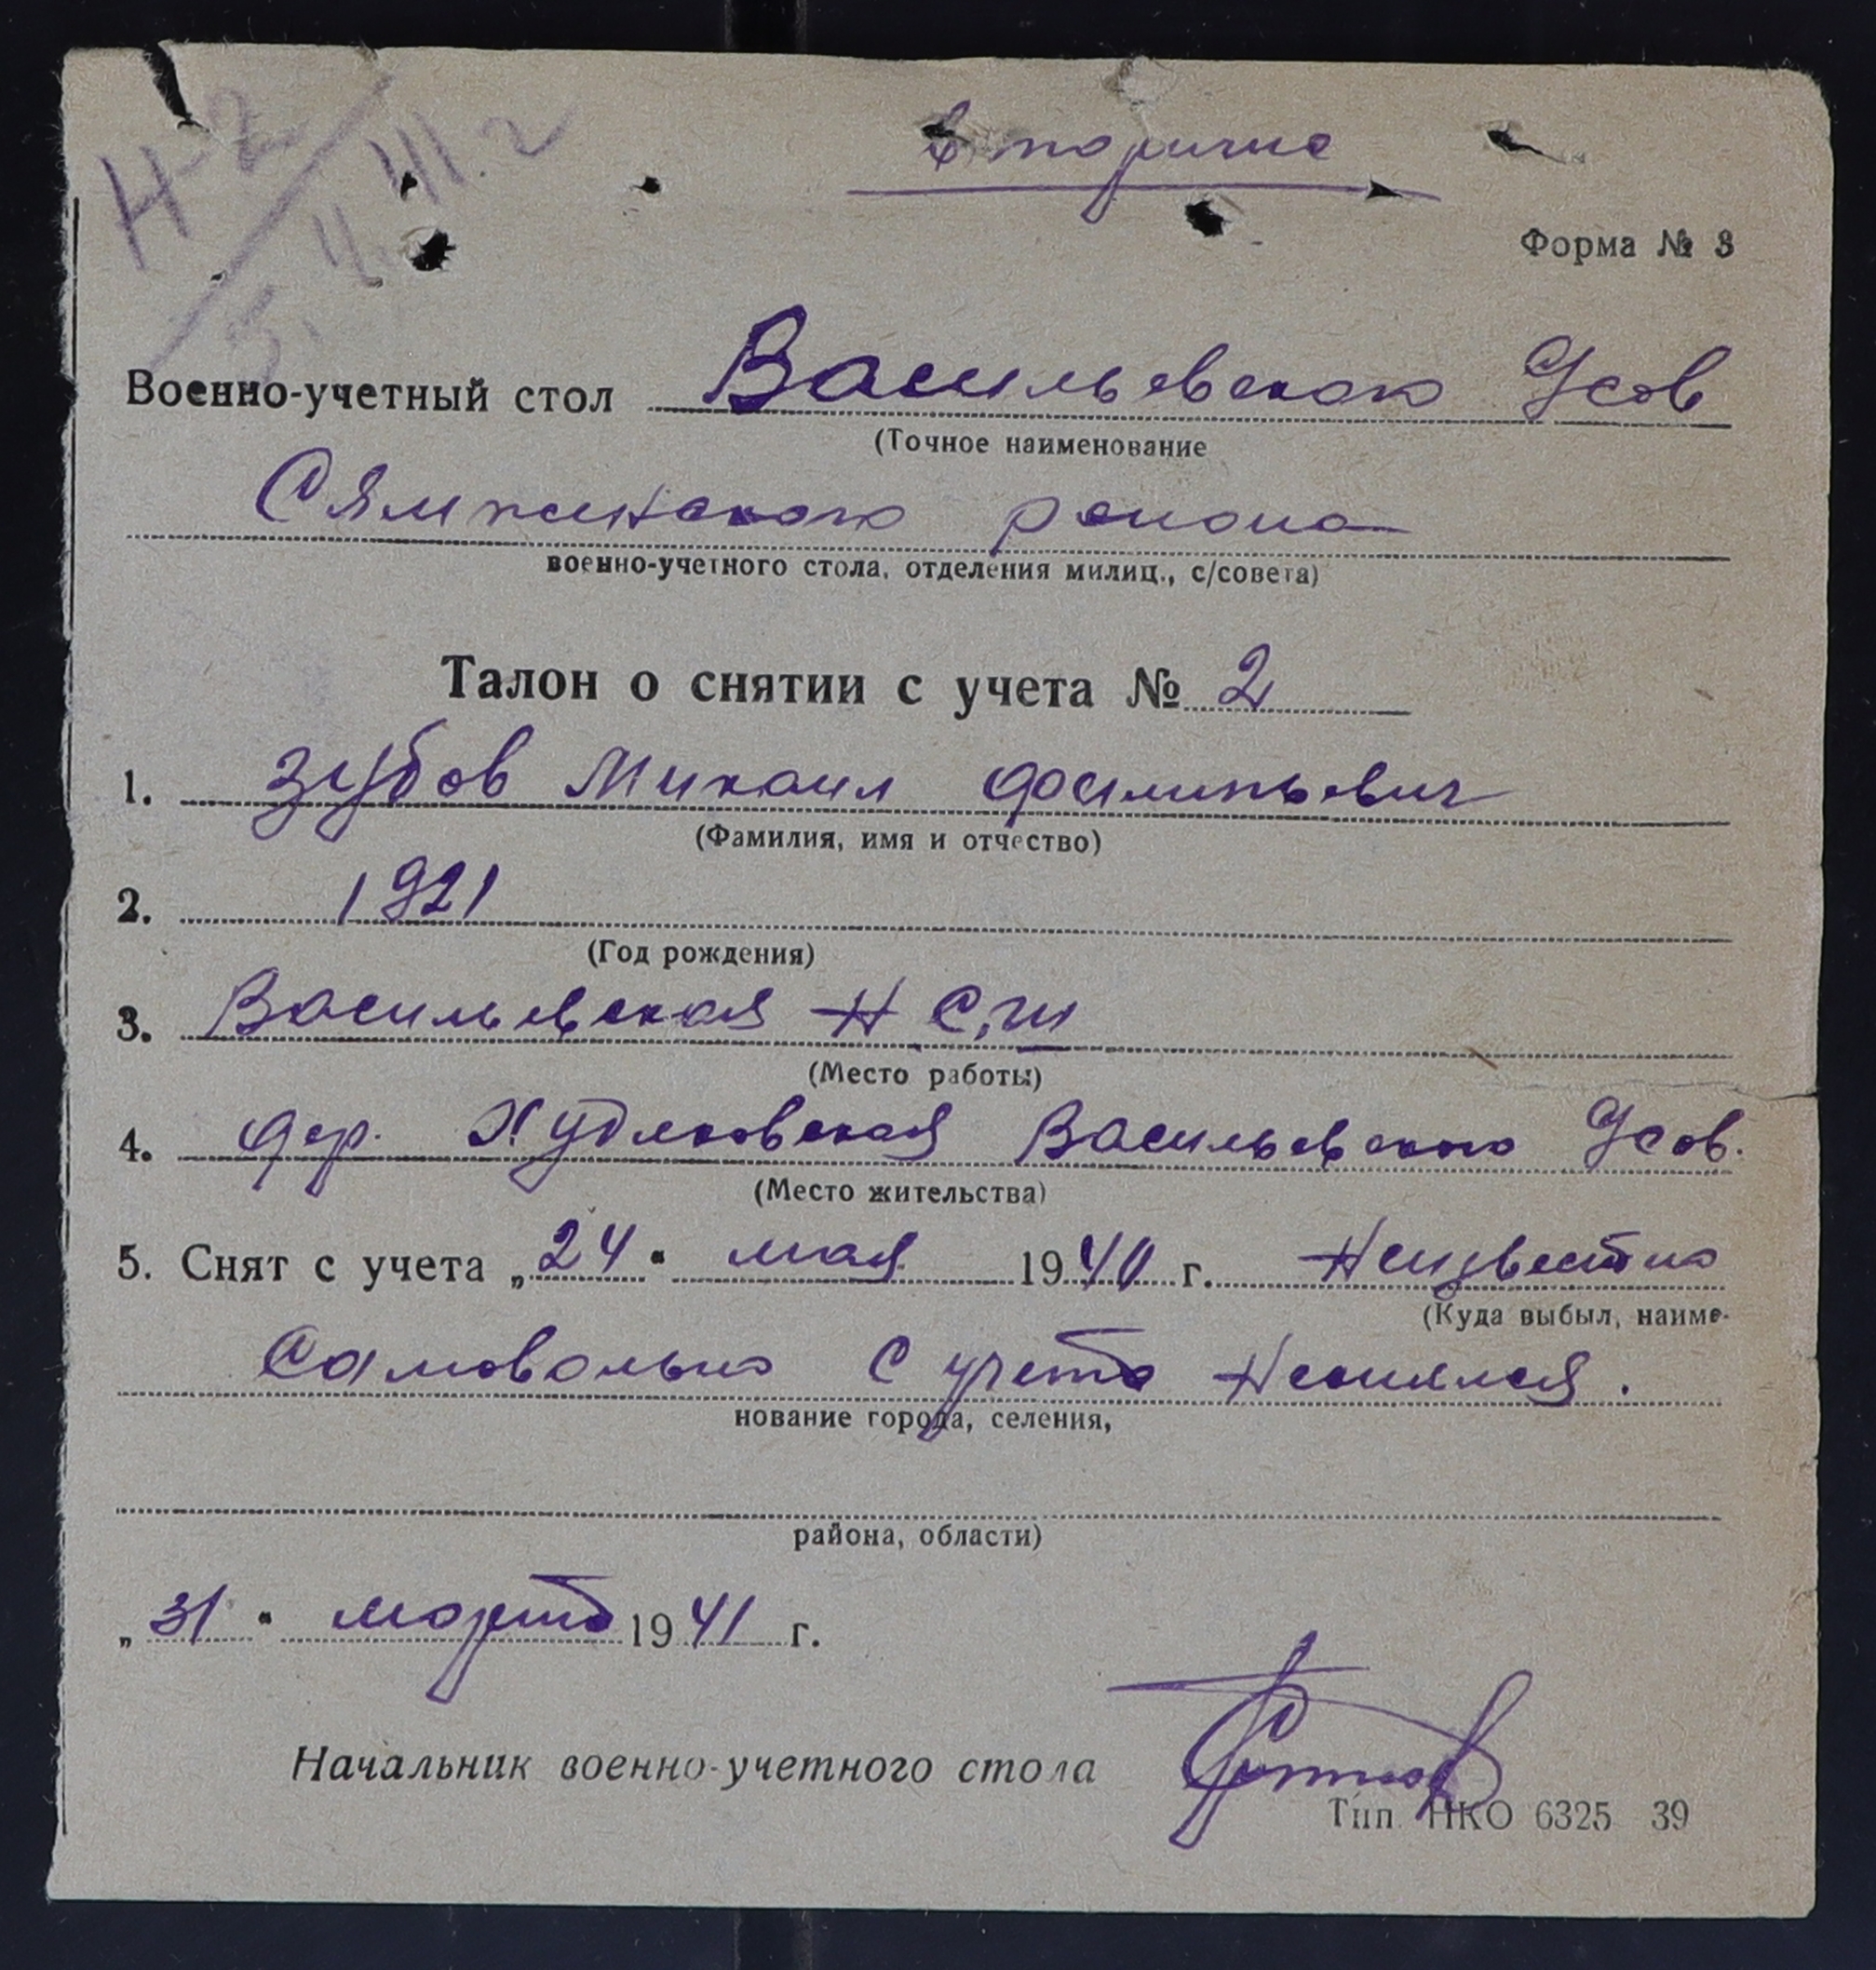 Н-2
41.г
4.
5.
вторично
Форма № 3
Военно-учетный стол Васильевского Усов
(Точное наименование
Сямженского района
военно-учетного стола, отделения милиц., с/совета)
Талон о снятии с учета № 2
1. Зубов Михаил Филипьевич
(Фамилия, имя и отчество)
2. 1921
(Год рождения)
3. Васильевская Н С.Ш
(Место работы)
4. дер. Васильевского Усов.
(Место жительства)
5. Снят с учета „24“ мая 1940 г. Неизвестно
(Куда выбыл, наиме-
Самовольно с учета Неснялся.
нование города, селения,
района, области)
„31“ марта 1941 г.
Начальник военно-учетного стола
Тип. НКО 6325 39